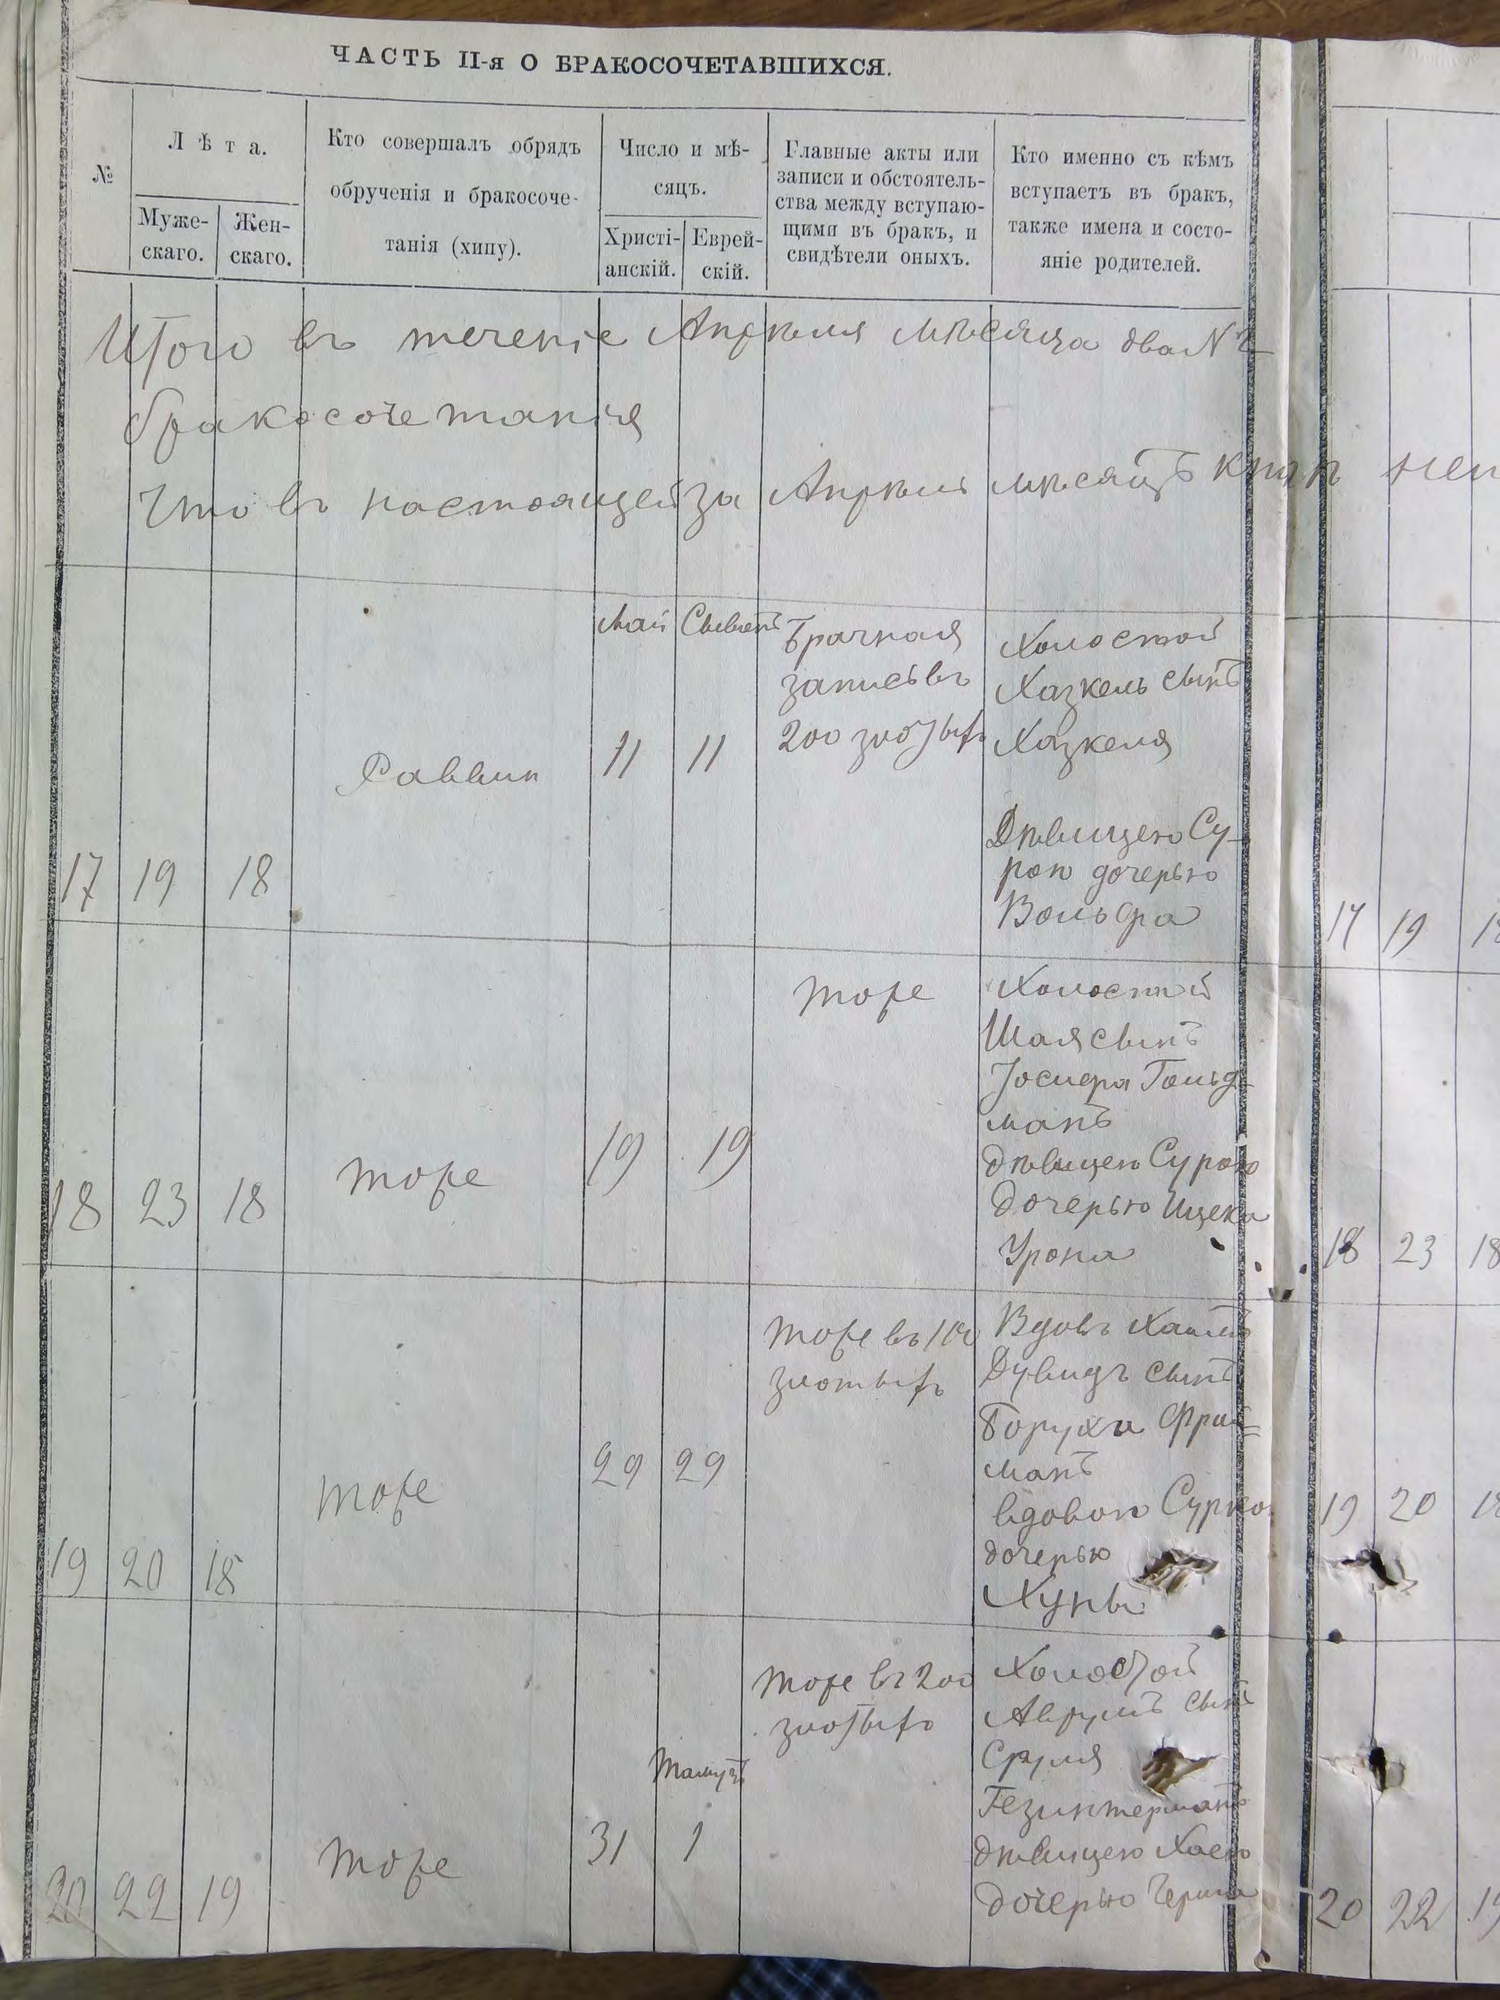 ЧАСТЬ II-я О БРАКОСОЧЕТАВШИХСЯ.
№
Лѣта.
Муже-
скаго.
Жен-
скаго.
Кто совершалъ обрядъ
обрученія и бракосоче-
танія (хипу).
Число и мѣ-
сяцъ.
Христі-
анскій.
Еврей-
скій.
Главные акты или
записи и обстоятель-
ства между вступаю-
щими въ бракъ, и
свидѣтели оныхъ.
Кто именно съ кѣмъ
вступаетъ въ бракъ,
также имена и состо-
яніе родителей.
Итого въ теченіе Апрѣля мѣсяца два № 2
бракосочетанія
Что въ настоящей за Апрѣль мѣсяцъ
17 19 18
Раввин
Май
11
Сыванъ
11
Брачная
запись въ
200 злотыхъ
Холостой
Хазкель сынъ
Хазкеля
Дѣвицею Су-
рою дочерью
Вольфа
17 19
18 23 18
тоже
19 19
тоже
Холостой
Шая сынъ
Іосифа Гольд-
манъ
дѣвицею Сурою
дочерью Ицека
Урона
18 23 18
19 20 18
тоже
29 29
тоже въ 100
злотыхъ
Вдовъ Хаимъ
Дувидъ сынъ
Боруха Фри-
манъ
вдовою
дочерью
Хуны
19 20
20 22 19
тоже
31
Тамузъ
1
тоже въ 200
злотыхъ
Холостой
Аврумъ сынъ
Сруля
дѣвицею Хаею
дочерью
20 22 19